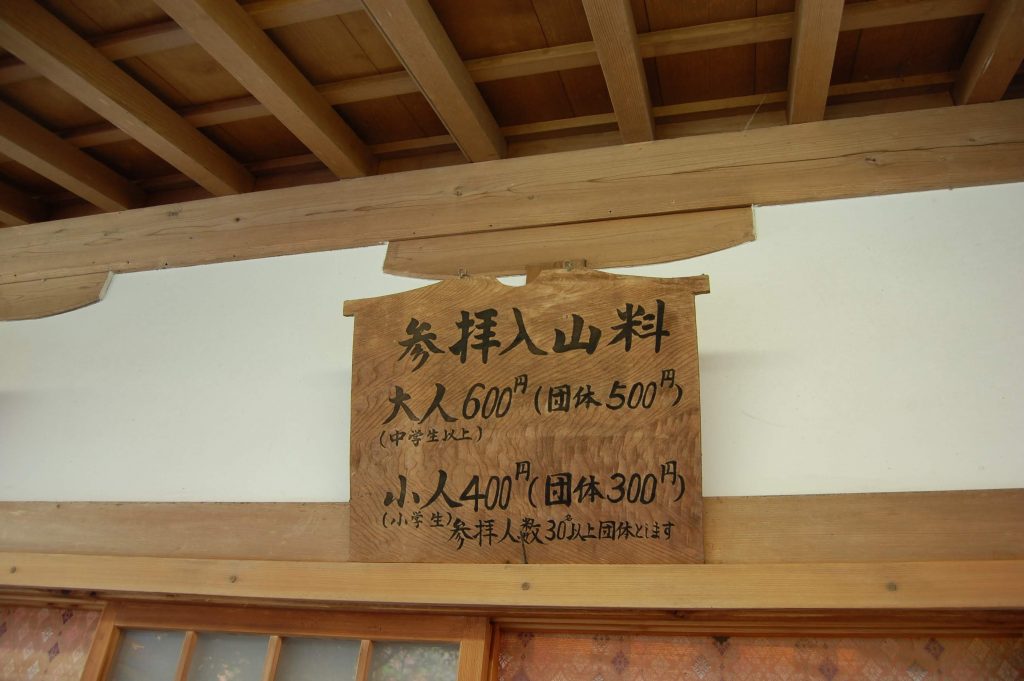 参拝入山料
大人600円(団体500円)
(中学生以上)
小人400円(団体300円)
(小学生)
参拝人数30名以上団体とします